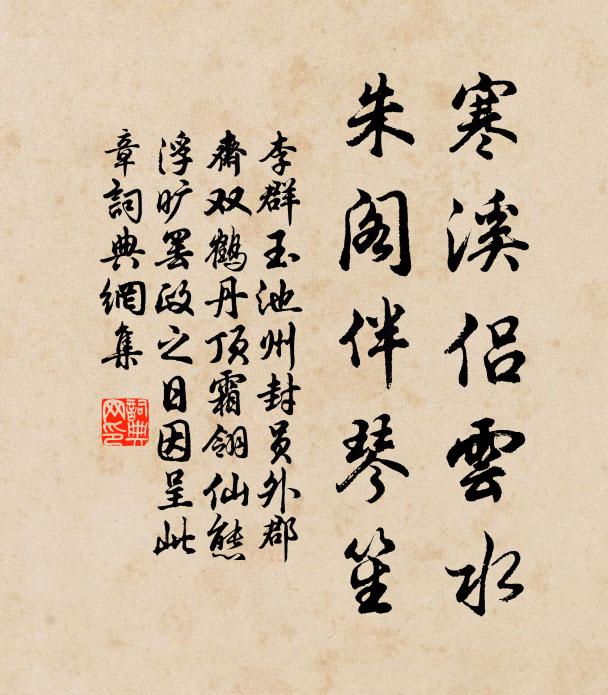 寒溪侣雲水
朱阁伴琴笙
李群玉池州封员外郡
齋双鶴丹顶霜翎仙態
浮旷罢政之日因呈此
章詞典網集
詞典网印